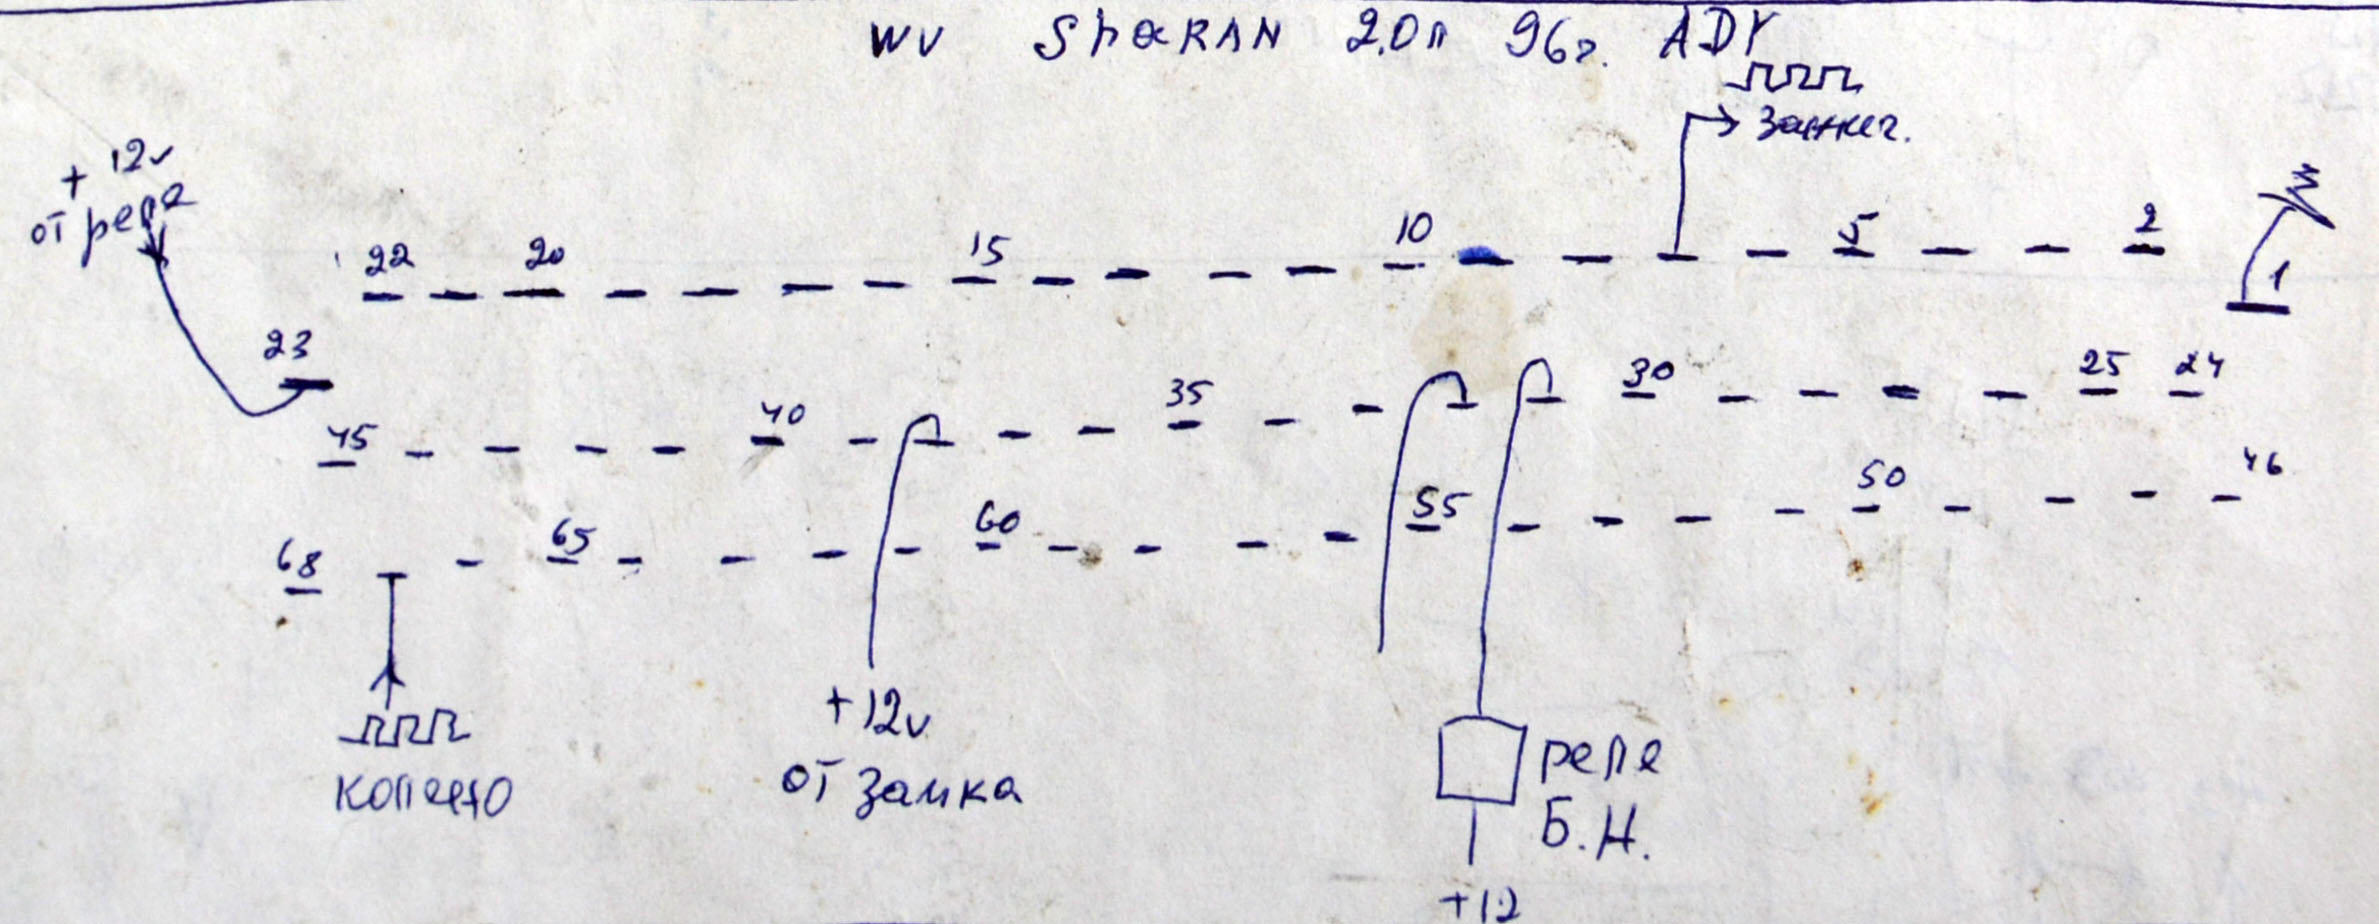 WV ShaRAN 2.0л 96г. ADY
зажиг.
+ 12v
от реле
22 20 15 10 5 2
1
23
45 40 35 30 25 24
68 65 60 55 50 46
колено
+12v
от замка
реле
Б.Н.
+12